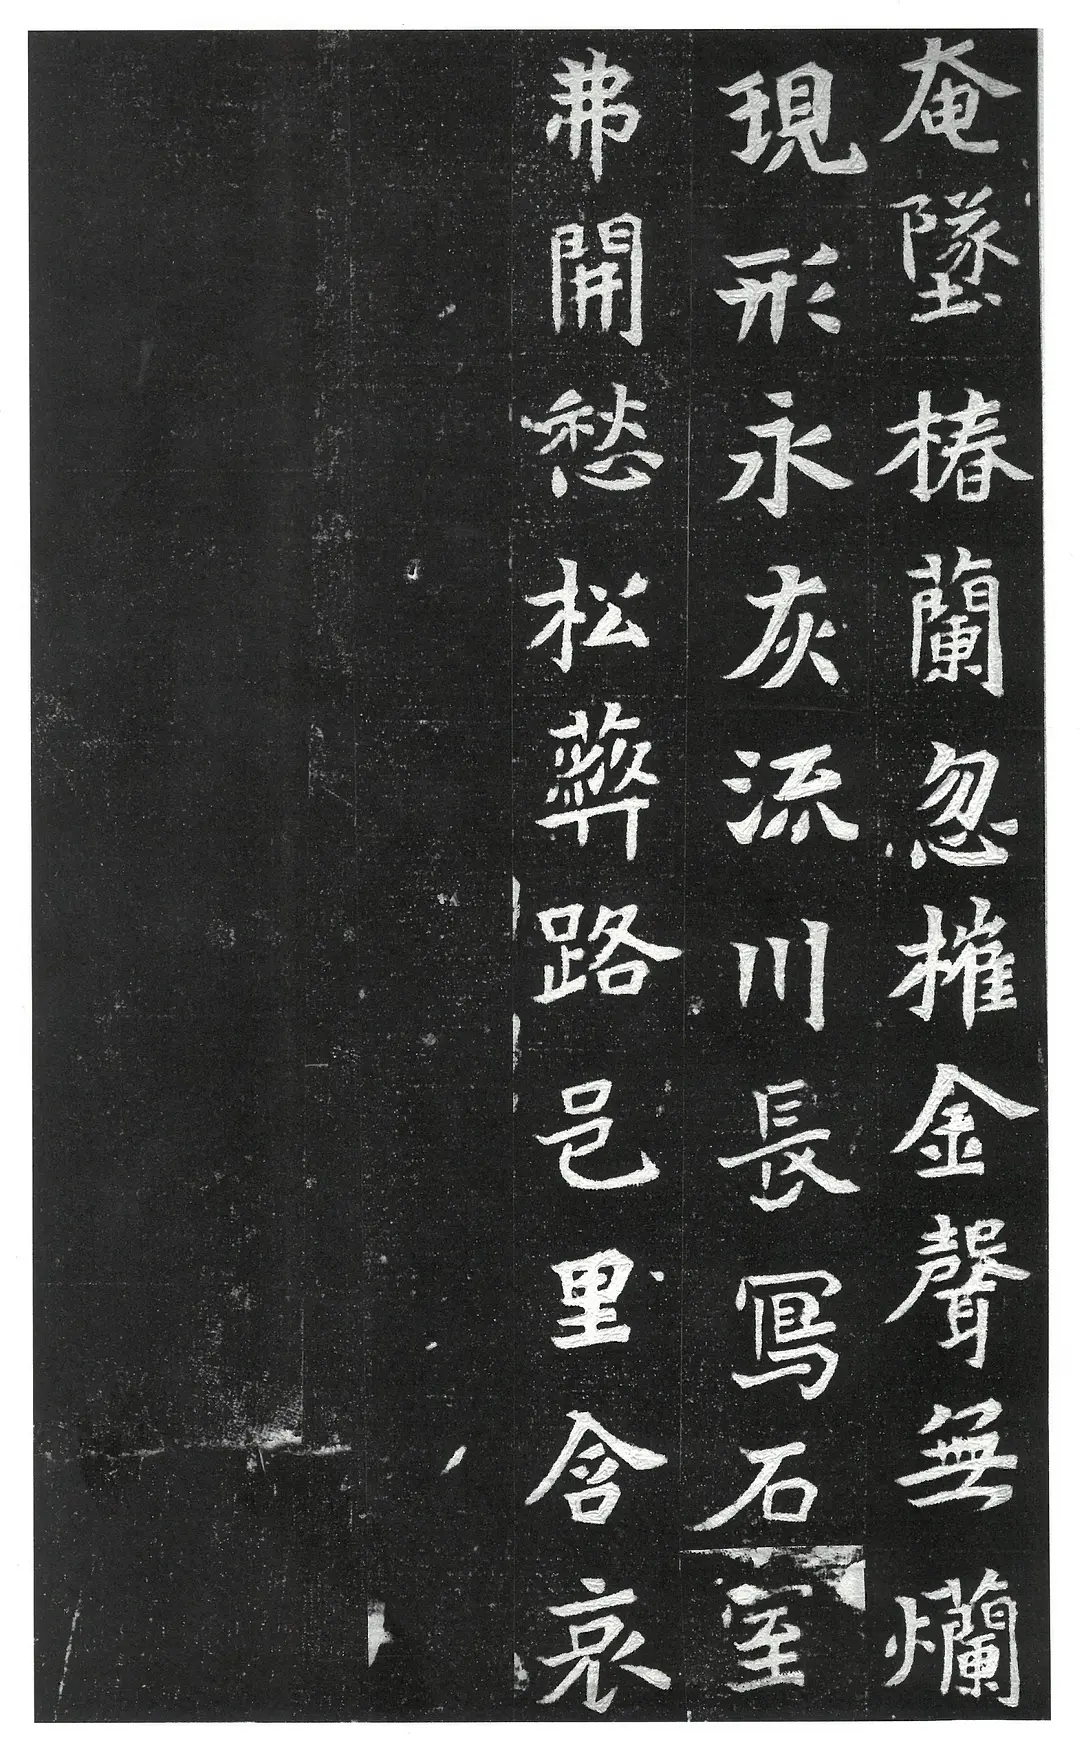 奄墜椿蘭忽摧金聲無爛
現形永灰流川長冩石室
弗開愁松路邑里含哀